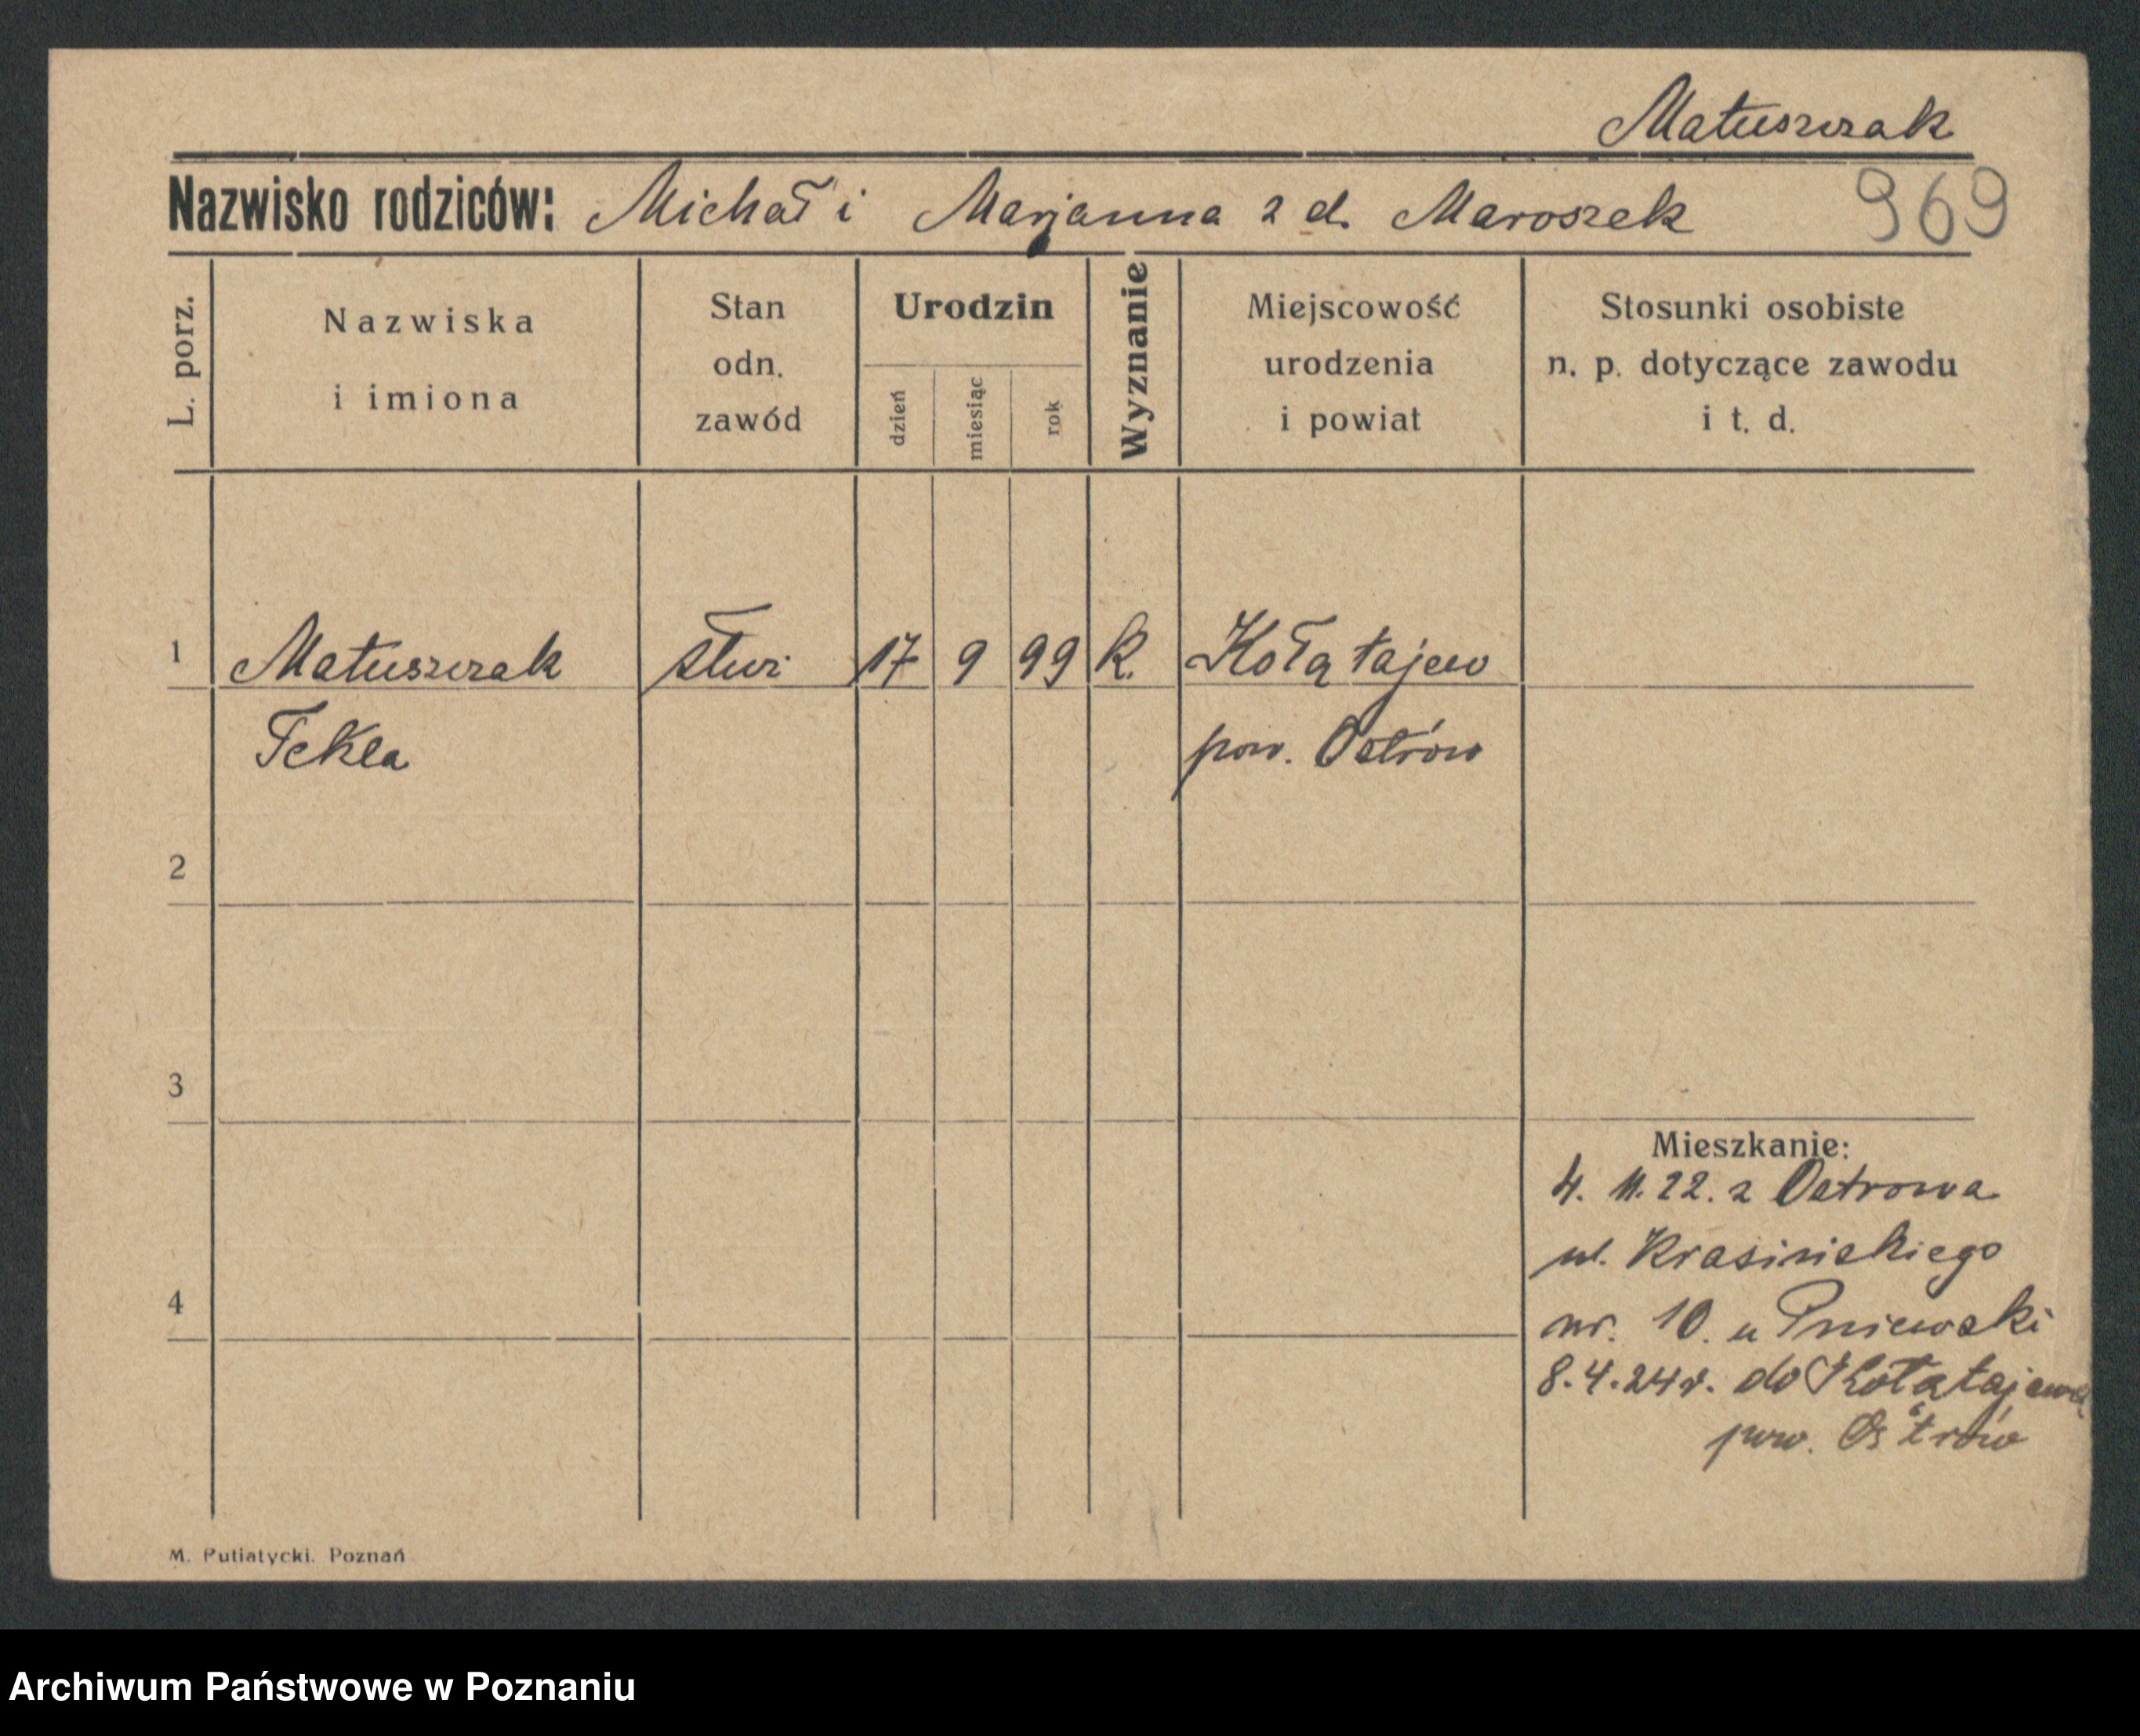 Matuszczak
Nazwisko rodziców: Michał i Marjanna z d. Maroszek 969
L. porz.
Nazwiska
i imiona
Stan
odn.
zawód
Urodzin
dzień
miesiąc
rok
Wyznanie
Miejscowość
urodzenia
i powiat
Stosunki osobiste
n. p. dotyczące zawodu
i t. d.
1 Matuszczak 17 9 99 k. Kołątajew
Tekla pow. Ostrów
2
3
Mieszkanie:
4. 11. 22. z Ostrowa
ul. Krasińskiego
4
nr. 10. u Pniewski
8.4.24 r. do Kołątajewa
pow. Ostrów
M. Putiatycki. Poznań
Archiwum Państwowe w Poznaniu